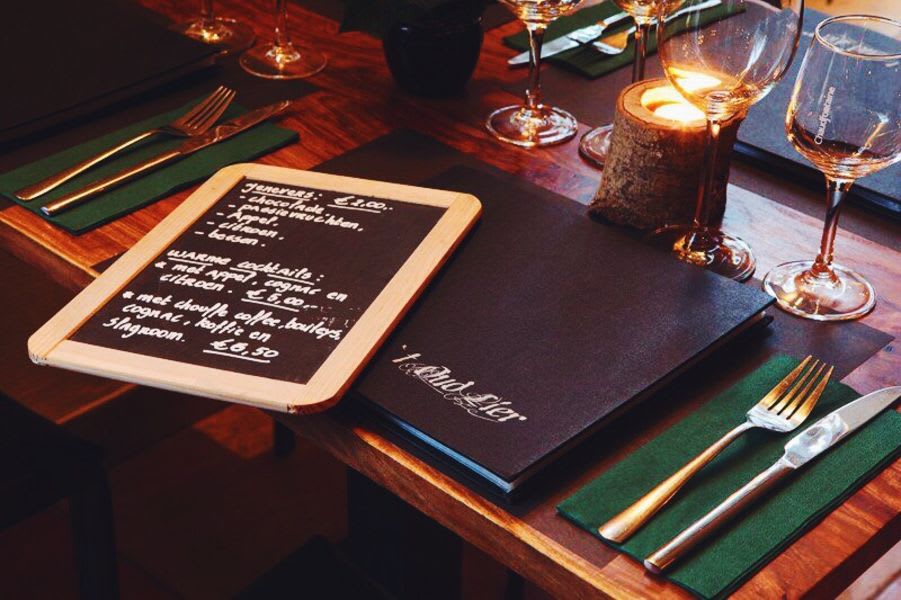 Jenevers: €2,00..
- chocolade
- passievruchten.
- Appel.
- citroen.
- bessen.
warme cocktails:
* met appel, cognac en
citroen. €5,00..
* met chouffe coffee, bauleys,
cognac, koffie en
slagroom. €6,50
't Oud Lier
Chaudfontaine